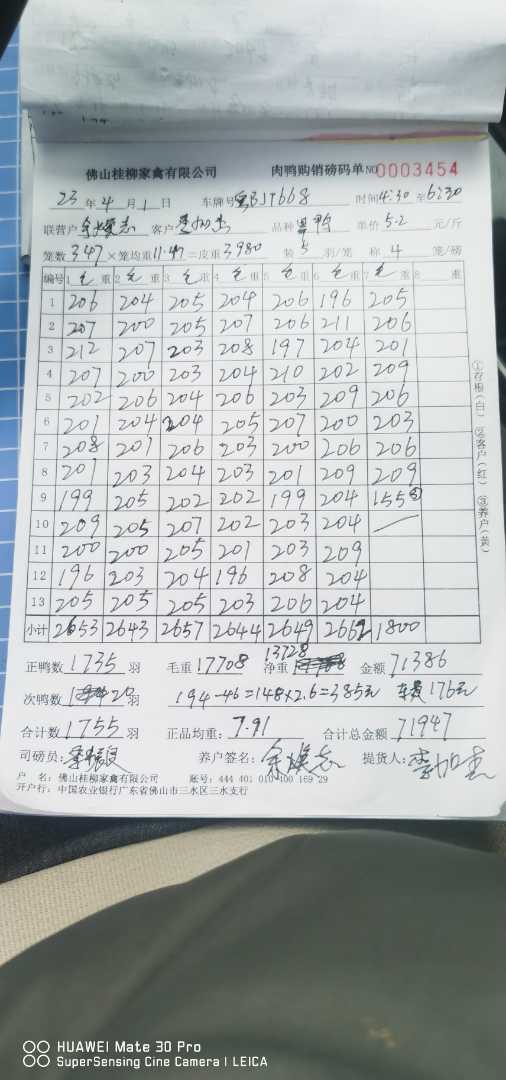 佛山桂柳家禽有限公司 肉鸭购销磅码单 NO 0003454
23 年 4 月 1 日 车牌号 粤BJT668 时间 4:30 至 6:30
联营户 余焕志 客户 李加杰 品种 单价 5.2 元/斤
笼数 347 ×笼均重 11.47 =皮重 3980 装 5 羽/笼 称 4 笼/磅
编号 1 毛重 2 毛重 3 毛重 4 毛重 5 毛重 6 毛重 7 毛重 8 重
1 206 204 205 204 206 196 205
2 207 200 205 207 206 211 206
3 212 207 203 208 197 204 201
4 207 200 203 204 210 202 209
5 202 206 204 206 203 209 206
6 201 204 204 205 207 200 203
7 208 201 206 203 200 206 206
8 201 203 204 203 201 209 209
9 199 205 202 202 199 204 155③
10 209 205 207 202 203 204 /
11 200 200 205 201 203 209
12 196 203 204 196 208 204
13 205 205 205 203 206 204
小计 2653 2643 2657 2644 2649 2662 1800
①存根(白) ②客户(红) ③养户(黄)
正鸭数 1735 羽 毛重 17708 净重 13728 金额 71386
次鸭数 20 羽 194-46=148×2.6=385元 车费176元
合计数 1755 羽 正品均重: 7.91 合计总金额 71947
司磅员: 养户签名: 余焕志 提货人: 李加杰
户 名: 佛山桂柳家禽有限公司 账号: 444 401 010 400 169 29
开户行: 中国农业银行广东省佛山市三水区三水支行
HUAWEI Mate 30 Pro
SuperSensing Cine Camera | LEICA